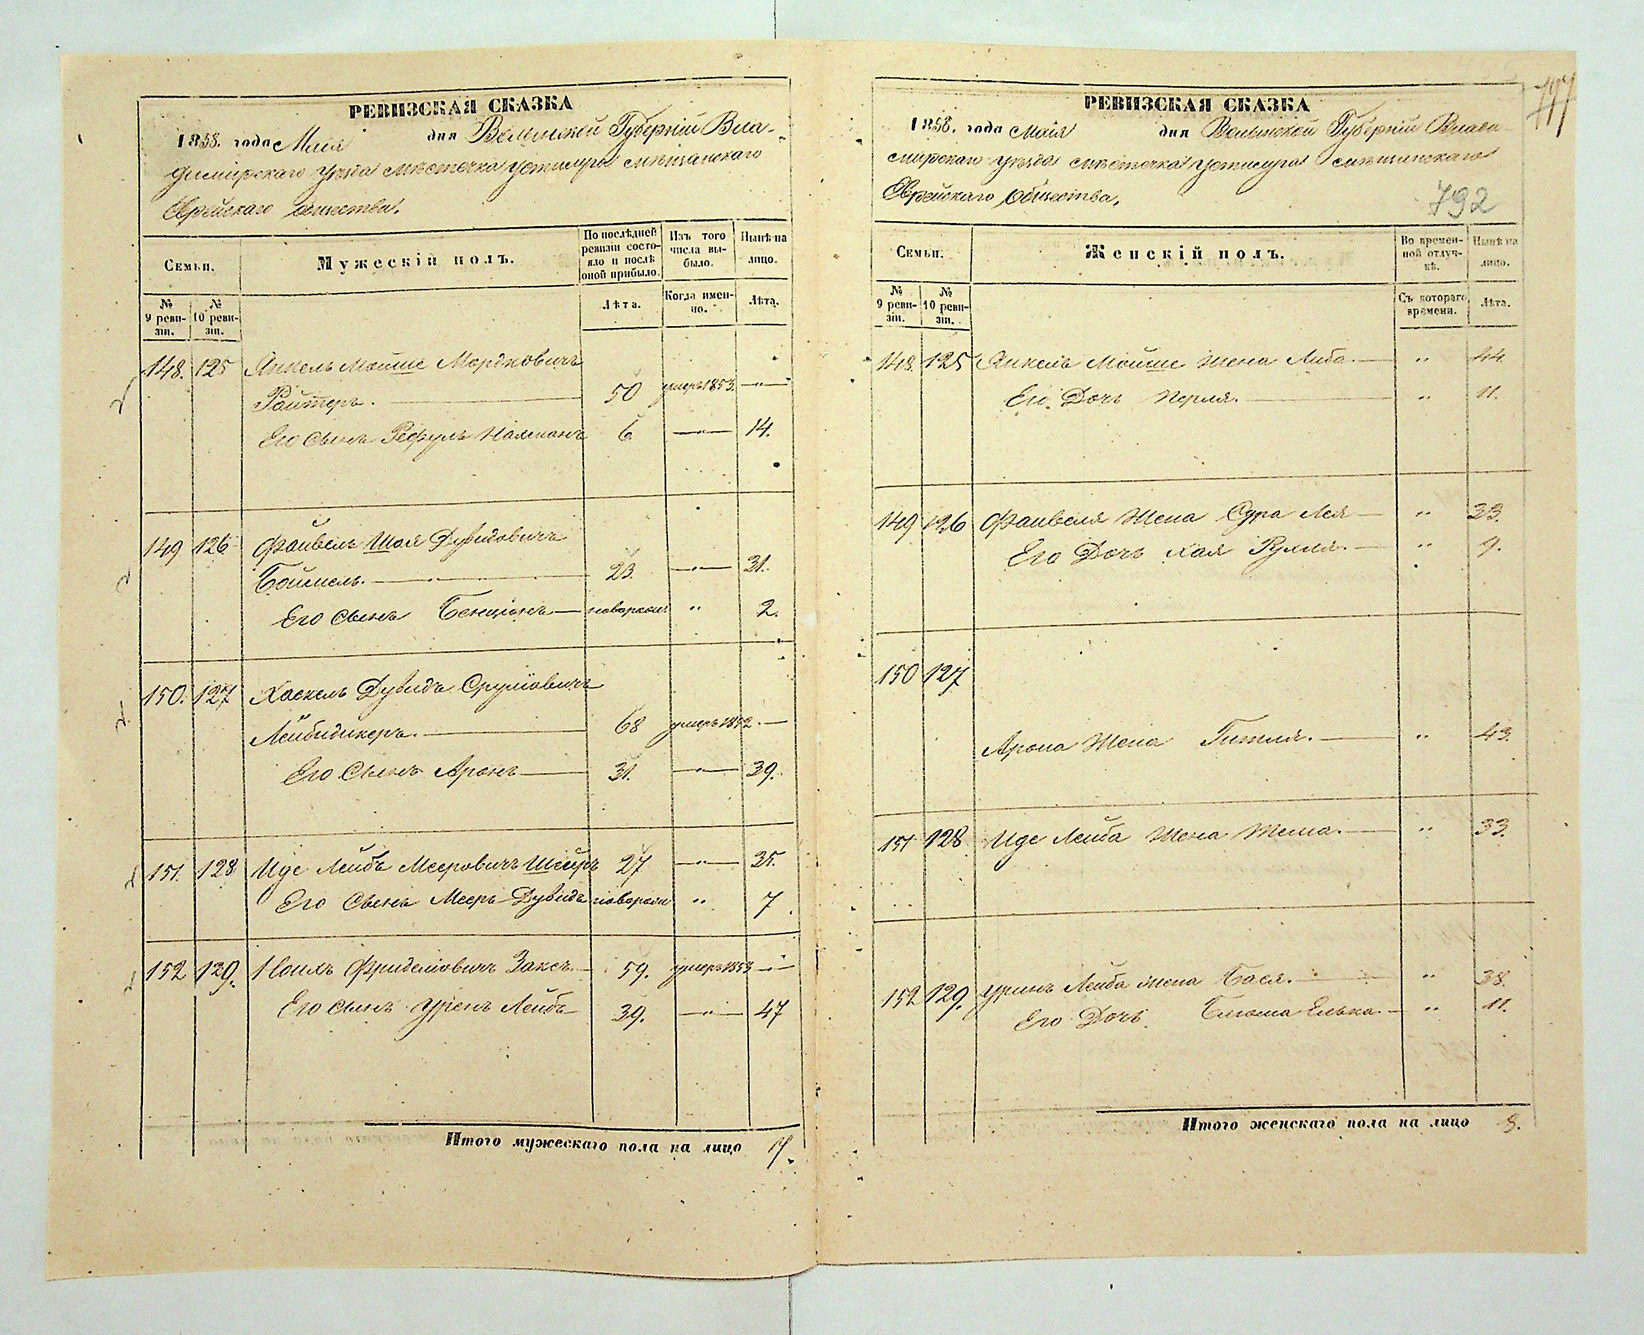 РЕВИЗСКАЯ СКАЗКА
1858. года Мая дня Волынской Губерніи Вла-
димірскаго уѣзда мѣстечка Устилуга мѣщанскаго
Еврейскаго общества.
Семьи.
Мужескій полъ.
По послѣдней ревизіи состояло и послѣ оной прибыло.
Изъ того числа выбыло.
Нынѣ на лицо.
№ 9 ревизіи.
№ 10 ревизіи.
Лѣта.
Когда именно.
Лѣта.
148. 125 Янкель Мошие Мордковичъ
Райтеръ. 50 умеръ 1853. —"—
Его сынъ Рефулъ Нахманъ 6 —"— 14.
149 126 Файвель Шоя Дувидовичъ
Боймель. 23. —"— 31.
Его сынъ Бенціонъ — новорожд " 2.
150. 127 Хаскель Дувидъ Сруліовичъ
Лейбидикеръ. 68 умеръ 1852. —
Его Сынъ Аронъ 31. —"— 39.
151. 128 Иде Лейбъ Мееровичъ Шнейръ 27 —"— 35.
Его Сынъ Мееръ Дувидъ новорож " 7.
152 129. Іоилъ Фриделіовичъ Заксъ 59. умеръ 1853 —"—
Его сынъ Уренъ Лейбъ 39. —"— 47
Итого мужескаго пола на лицо 7.
РЕВИЗСКАЯ СКАЗКА
1858. года Мая дня Волынской Губерніи Влади-
мірскаго уѣзда мѣстечка Устилуга мѣщанскаго
Еврейскаго Общества.
792
Семьи.
Женскій полъ.
Во временной отлучкѣ.
Нынѣ на лицо.
№ 9 ревизіи.
№ 10 ревизіи.
Съ котораго времени.
Лѣта.
148. 125 Янкеля Мошие жена Либа. — " 44.
Его Дочь Перля. " 11.
149 126 Файвеля Жена Сура Лея — " 33.
Его Дочь Хая Рухля. — " 9.
150 127
Арона Жена Гитля. — " 43.
151 128 Иде Лейба Жена Жения. — " 33.
152 129. Уринъ Лейба жена Бася. " 38.
Его Дочь Блюма Елька. — " 11.
Итого женскаго пола на лицо 8.